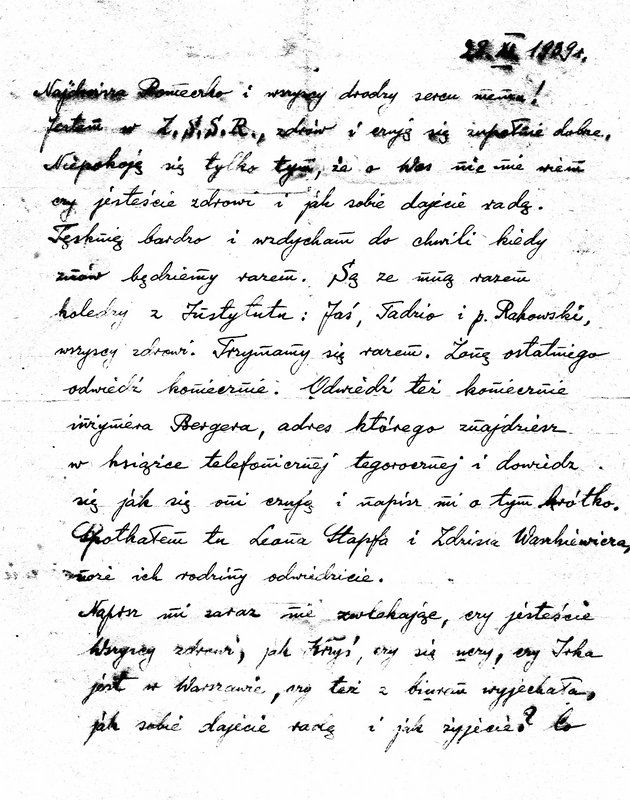 29. XI 1939 r.
Najdroższa Romeczko i wszyscy drodzy sercu memu!
Jestem w Z.S.S.R., zdrów i czuję się zupełnie dobrze.
Niepokoję się tylko tym, że o Was nic nie wiem
czy jesteście zdrowi i jak sobie dajecie radę.
Tęsknię bardzo i wzdycham do chwili kiedy
znów będziemy razem. Są ze mną razem
koledzy z Instytutu: Jaś, Tadzio i p. Rakowski,
wszyscy zdrowi. Trzymamy się razem. Żonę ostatniego
odwiedź koniecznie. Odwiedź też koniecznie
inżyniera Bergera, adres którego znajdziesz
w książce telefonicznej tegorocznej i dowiedz
się jak się oni czują i napisz mi o tym krótko.
Spotkałem tu Leona Stapfa i Zdzisia Waszkiewicza,
może ich rodziny odwiedzicie.
Napisz mi zaraz nie zwlekając, czy jesteście
wszyscy zdrowi, jak Krzyś, czy się uczy, czy Irka
jest w Warszawie, czy też z biurem wyjechała,
jak sobie dajecie radę i jak żyjecie? Co